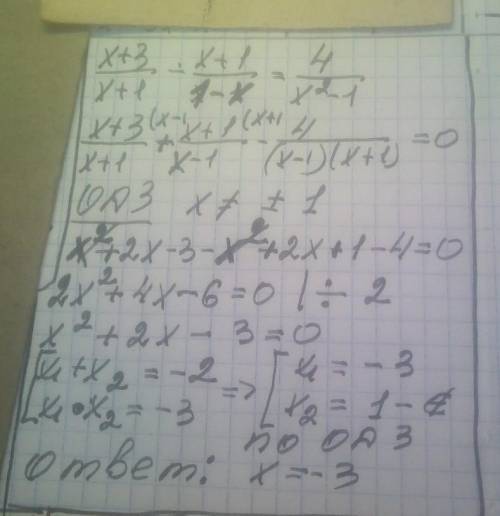 x+3/x+1 - x+1/1-x = 4/x²-1
x+3/x+1 (x-1 + x+1/x-1 (x+1 - 4/(x-1)(x+1) = 0
ОДЗ x ≠ ± 1
x²+2x-3-x²+2x+1-4=0
2x²+4x-6=0 | ÷ 2
x²+2x-3=0
[x₁+x₂=-2 => [x₁=-3
[x₁•x₂=-3 [x₂=1-
по ОДЗ
Ответ: x=-3